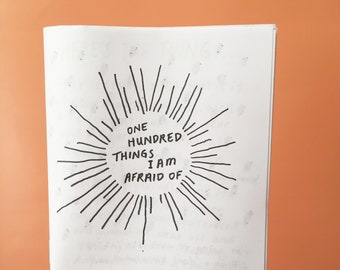 ONE
HUNDRED
THINGS
I AM
AFRAID OF